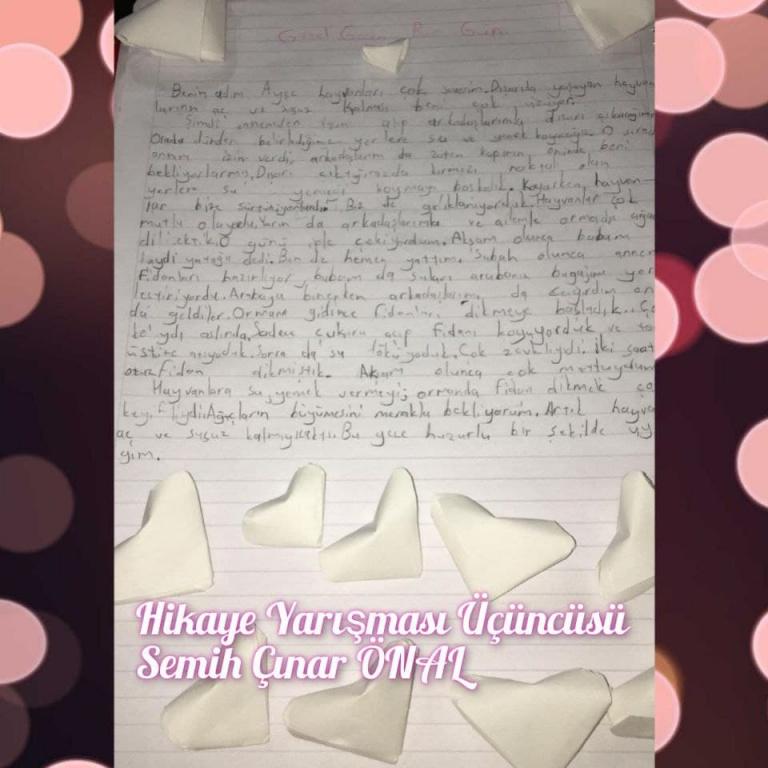 Güzel Geçen Bir Gün
Benim adım Ayşe hayvanları çok severim. Dışarda yaşayan hayvan
larının aç ve susuz kalması beni çok üzüyor.
Şimdi annemden izin alıp arkadaşlarımla dışarı çıkacağım
Orada dünden belirlediğimiz yerlere su ve yemek koyacağız. O sırada
annem izin verdi, arkadaşlarım da zaten kapının önünde beni
bekliyorlarmış. Dışarı çıktığımızda kırmızı nokta olan
yerlere su yemeği koymaya başladık. Koyarken hayvan-
lar bize Biz de Hayvanlar çok
mutlu Yarın da arkadaşlarımla ve ailemle ormanda ağaç
O günü iple çekiyordum. Akşam olunca babam
haydi yatağa dedi. Ben de hemen yattım. Sabah olunca annem
fidanları hazırlıyor, babam da suları arabanın bagajına yer
leştiriyordu. Arabaya binerken arkadaşlarımı da çağırdım on
da geldiler. Ormana gidince fidanları dikmeye başladık..
aslında. Sadece çukuru açıp fidanı koyuyorduk ve
üstüne Sonra da su döküyoduk. Çok zevkliydi. İki saat
otuz fidan dikmiştik. Akşam olunca çok mutluydum
Hayvanlara su, yemek vermeyi; ormanda fidan dikmek
Ağaçların büyümesini merakla bekliyorum. Artık hayva
aç ve susuz kalmıyacaktı. Bu gece huzurlu bir şekilde uy
yim.
Hikaye Yarışması Üçüncüsü
Semih Çınar ÖNAL